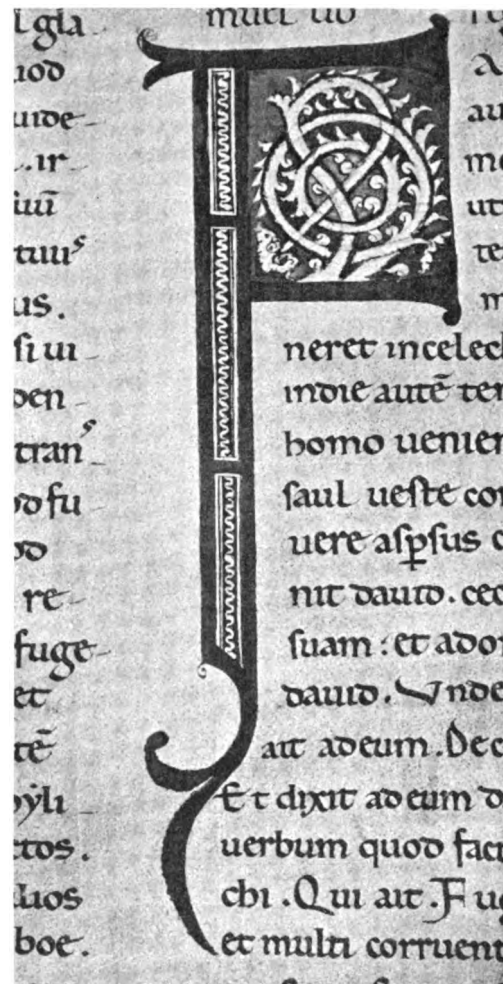 l gla-
uod
uide-
. ir-
suū
tuuˢ
us.
si ui-
den-
tranˢ-
od fu
od
re-
fuge-
et
tē
hyli
ctos.
lios
boe.
F
a
au
ut
te
m
neret incelech
indie autē ter
homo uenien
saul ueste con
uere aspsus c
nit dauid. cec
suam : et ador
dauid. Unde
ait adeum. Dec
Et dixit adeum d
uerbum quod factu
chi. Qui ait. Fug
et multi corruent